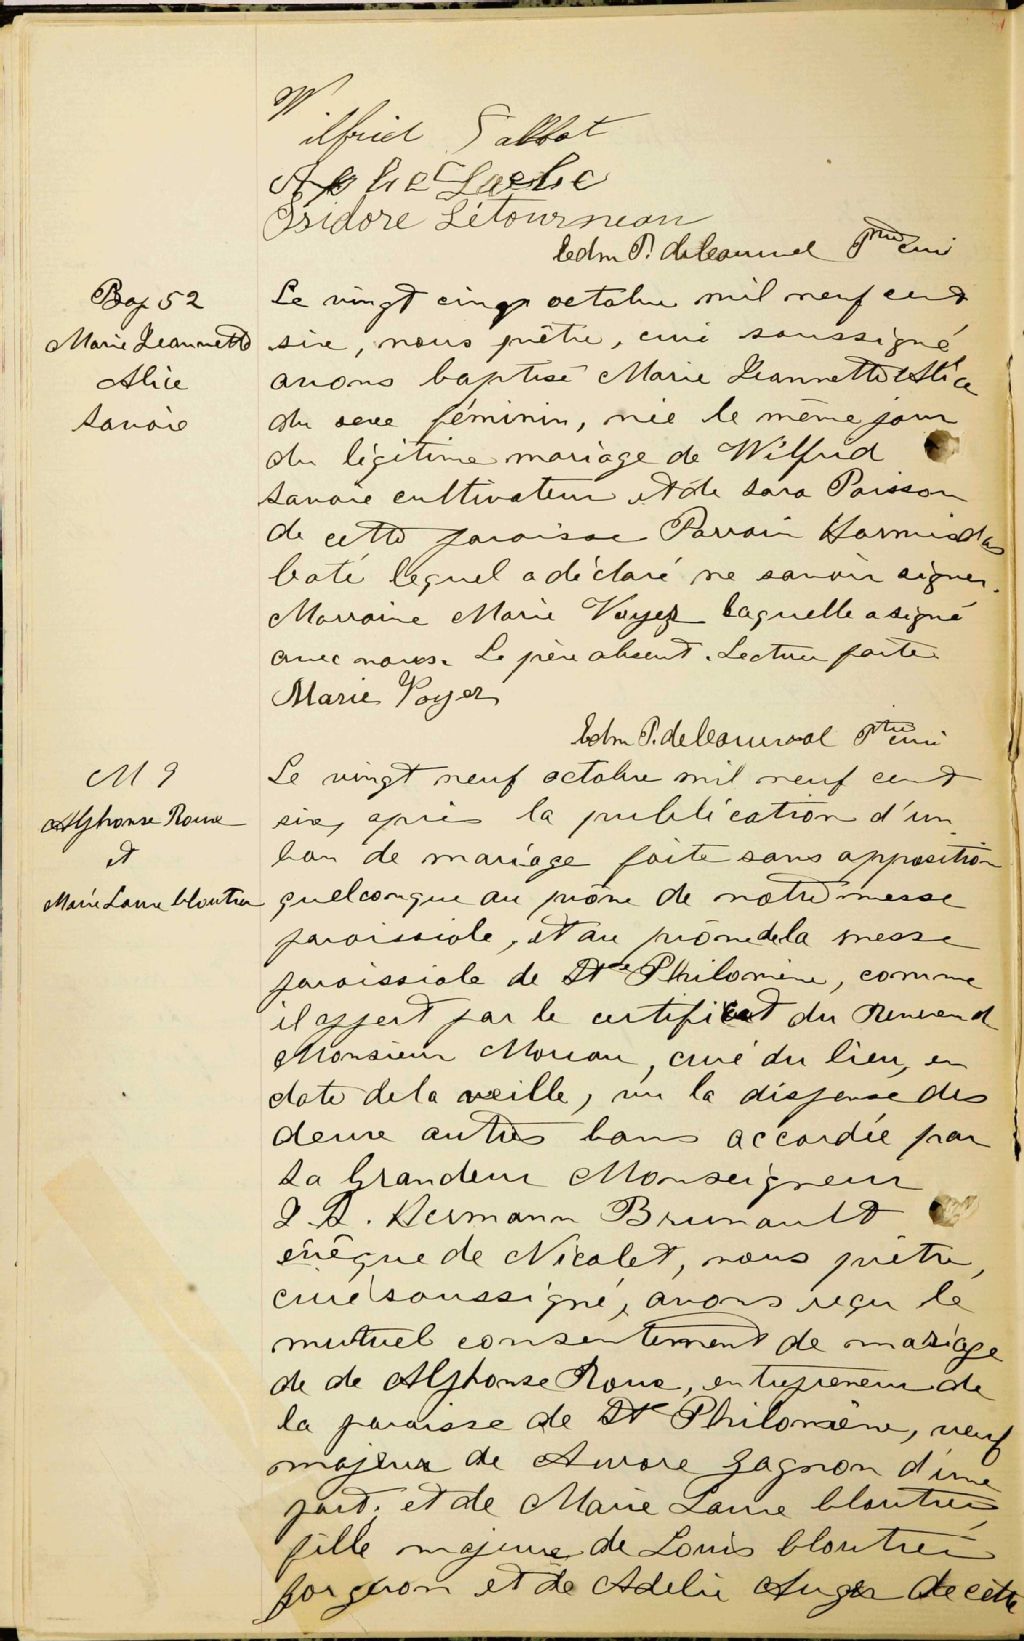 Wilfrid Talbot
Isidore Létourneau
Edm P. de Courval Ptre curé
Bap 52
Marie Jeannette
Alice
Savoie
Le vingt cinq octobre mil neuf cent
six, nous prêtre, curé soussigné
avons baptisé Marie Jeannette Alice
du sexe féminin, née le même jour
du légitime mariage de Wilfrid
Savoie cultivateur et de Sara Poisson
de cette paroisse Parrain Hormisdas
Coté lequel a déclaré ne savoir signer.
Marraine Marie Voyer laquelle a signé
avec nous. Le père absent. Lecture faite
Marie Voyer
Edm P. de Courval Ptre curé
M 9
Alphonse Roux
et
Marie Laure Cloutier
Le vingt neuf octobre mil neuf cent
six, après la publication d'un
ban de mariage faite sans opposition
quelconque au prône de notre messe
paroissiale, et au prône de la messe
paroissiale de Ste Philomène, comme
il appert par le certificat du Révérend
Monsieur, curé du lieu, en
date de la veille, vu la dispense des
deux autres bans accordée par
Sa Grandeur Monseigneur
J. S. Hermann Brunault
évêque de Nicolet, nous prêtre,
curé soussigné, avons reçu le
mutuel consentement de mariage
de de Alphonse Roux, entrepreneur de
la paroisse de Ste Philomène, veuf
majeur de Aurore Gagnon d'une
part; et de Marie Laure Cloutier
fille majeure de Louis Cloutier
forgeron et de Adélie Auger de cette